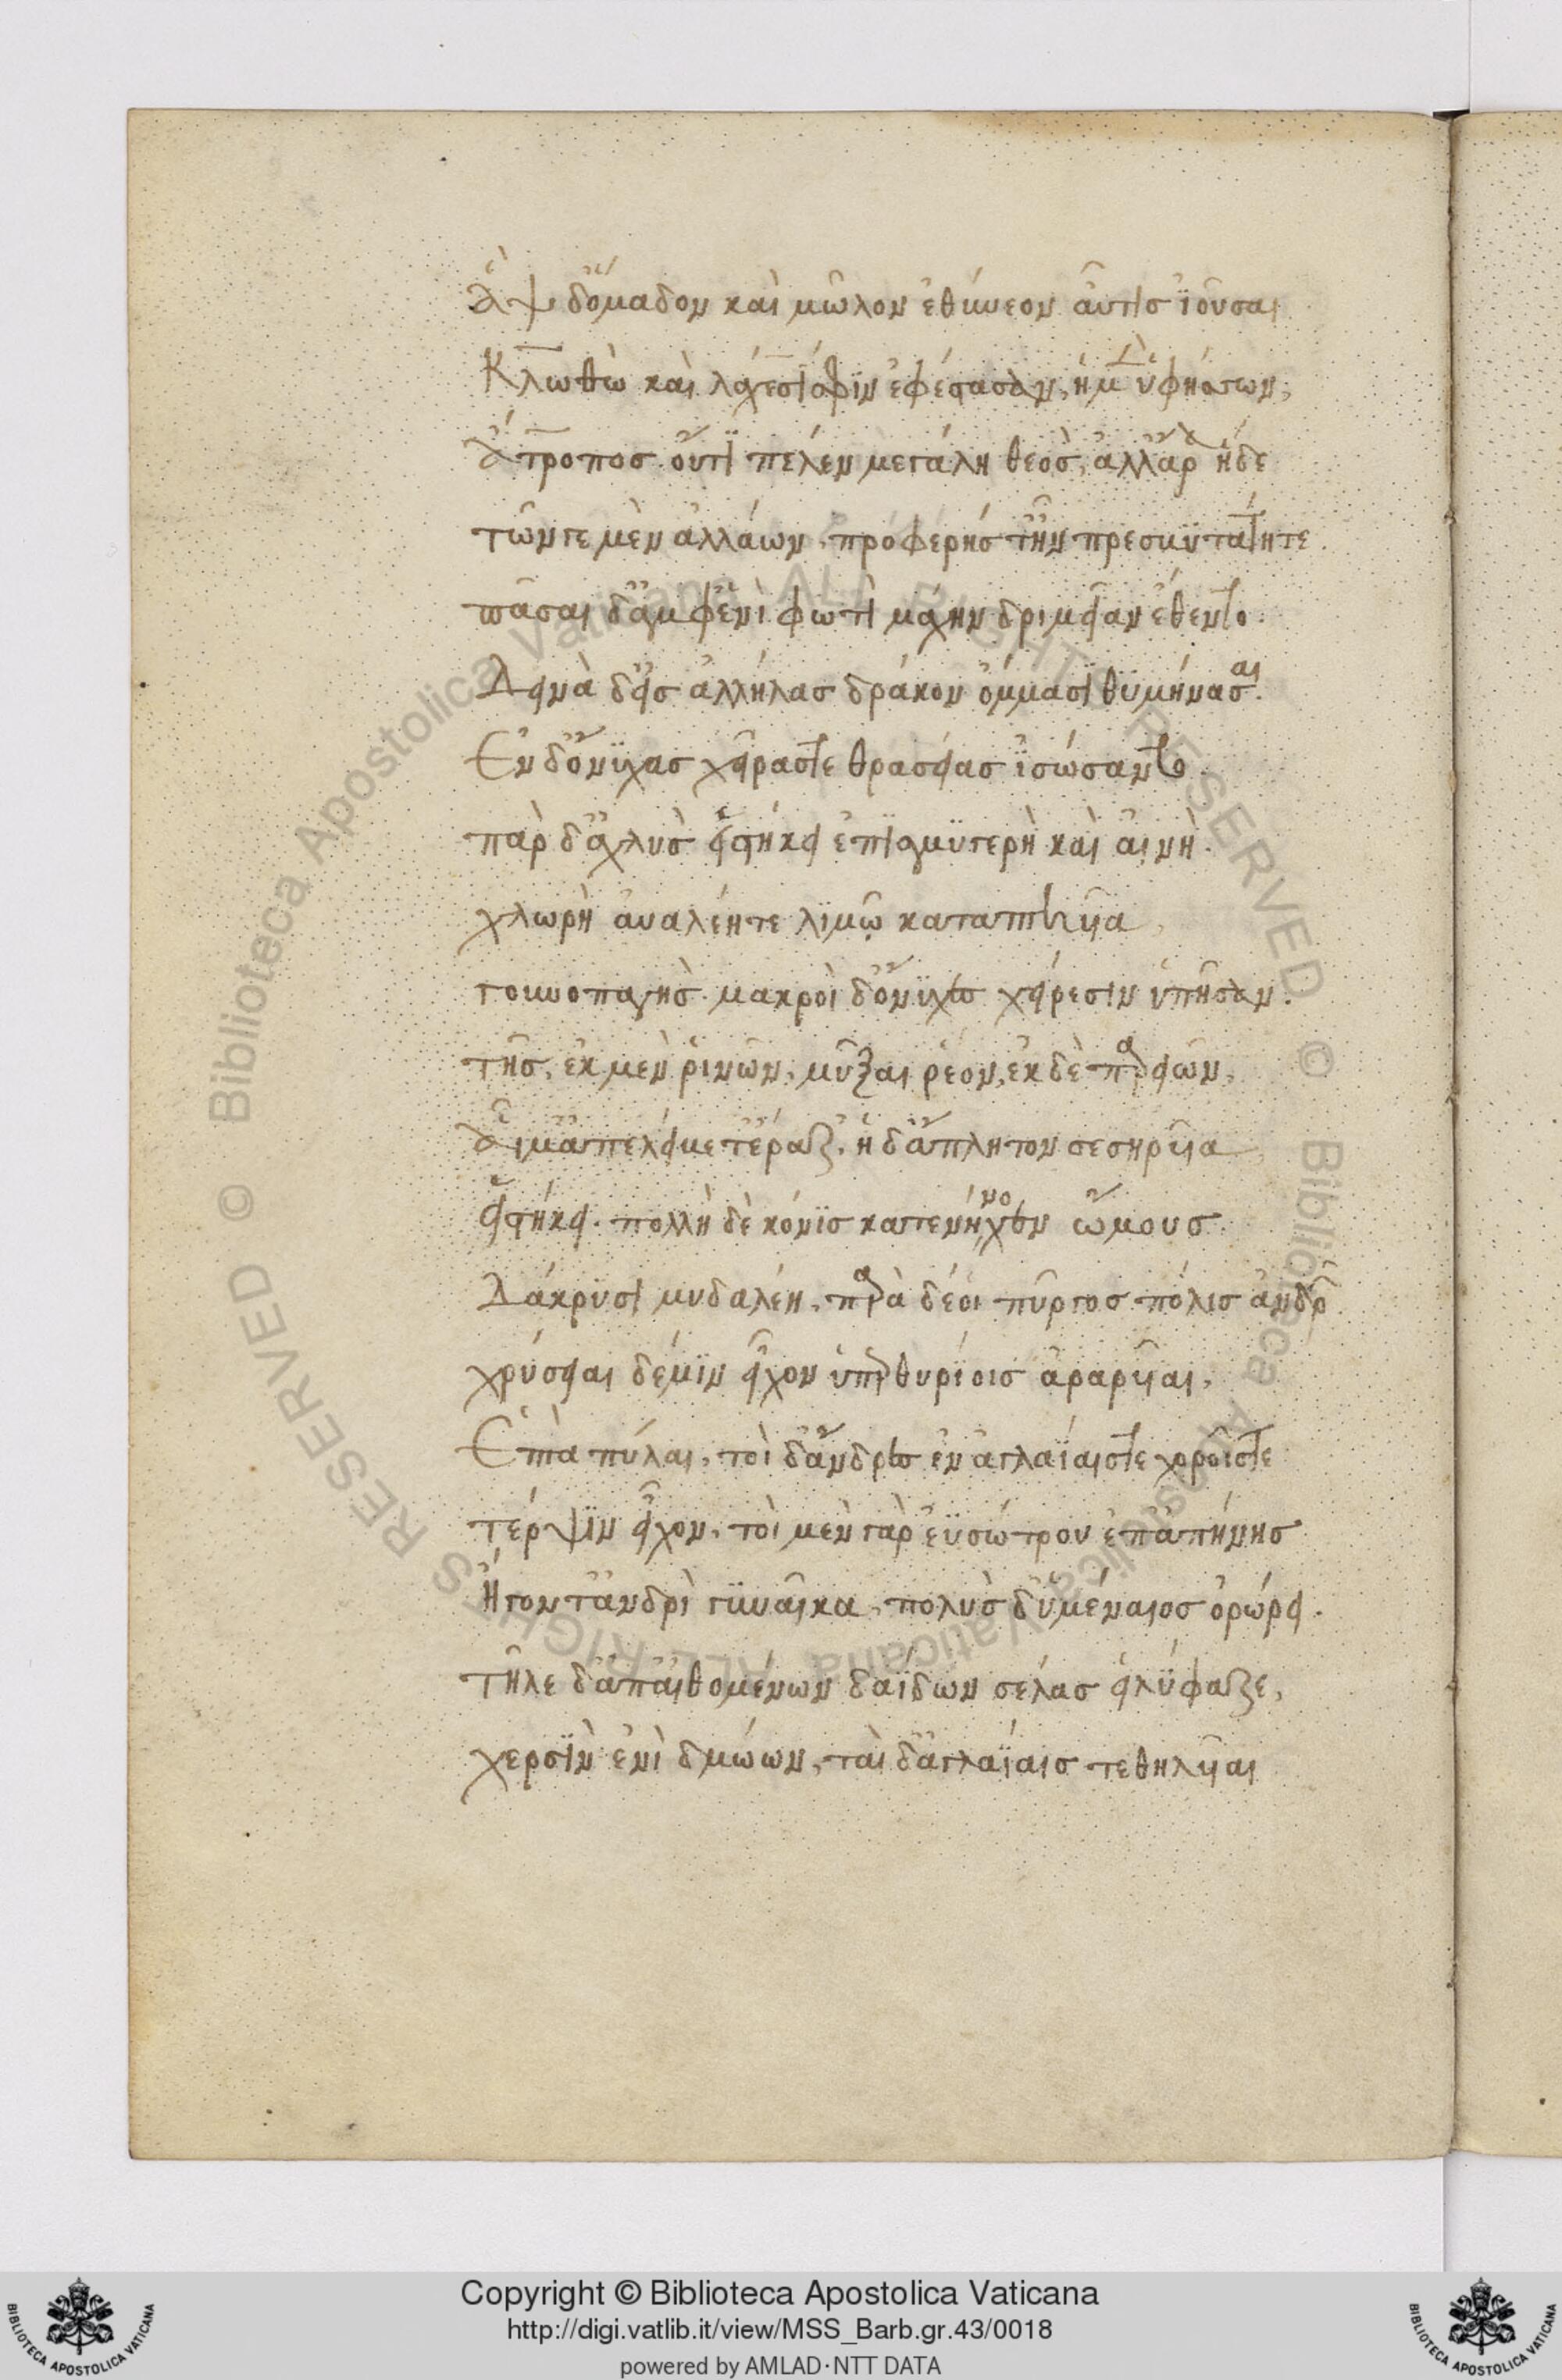 Ἂψ δ' ὅμαδον καὶ μῶλον ἐθύνεον αὖτις ἰοῦσαι
Κλωθὼ καὶ λάχεσίς σφιν ἐφέστασαν, ἡ μὲν ὑφήσσων,
Ἄτροπος οὔτι πέλεν μεγάλη θεὸς, ἀλλ' ἄρ' ἥδε
τῶν γε μὲν ἀλλάων, προφερής τ' ἦν πρεσβυτάτη τε.
πᾶσαι δ' ἀμφ' ἑνὶ φωτὶ μάχην δριμεῖαν ἔθεντο.
Δεινὰ δ' εἰς ἀλλήλας δράκον ὄμμασι θυμήνασαι.
Ἐν δ' ὄνυχας χεῖράς τε θρασείας ἰσώσαντο.
πὰρ δ' ἀχλὺς εἱστήκει ἐπισμυγερὴ καὶ αἰνὴ.
χλωρὴ ἀυαλέη τε λιμῷ καταπεπτηυῖα,
γουνοπαγὴς. μακροὶ δ' ὄνυχες χείρεσιν ὑπῆσαν.
τῆς, ἐκ μὲν ῥινῶν, μύξαι ῥέον, ἐκ δὲ παρειῶν,
αἷμ' ἀπελείβετ' ἔραζ', ἡ δ' ἄπλητον σεσηρυῖα
εἱστήκει. πολλὴ δὲ κόνις κατενήνοθεν ὤμους.
Δάκρυσι μυδαλέη, παρὰ δέ οἱ πύργος πόλις ἀνδρῶν
χρύσειαι δέ μιν εἶχον ὑπερθυρίοις ἀραρυῖαι,
Ἑπτὰ πύλαι, τοὶ δ' ἄνδρες ἐν ἀγλαΐαις τε χοροῖς τε
τέρψιν εἶχον, τοὶ μὲν γὰρ ἐϋσώτρου ἐπ' ἀπήνης
Ἤγοντ' ἀνδρὶ γυναῖκα, πολὺς δ' ὑμέναιος ὀρώρει.
τῆλε δ' ἀπ' αἰθομένων δαΐδων σέλας εἰλύφαζε,
χερσὶν ἐνὶ δμώων, ταὶ δ' ἀγλαΐαις τεθηλυῖαι
Copyright © Biblioteca Apostolica Vaticana
http://digi.vatlib.it/view/MSS_Barb.gr.43/0018
powered by AMLAD·NTT DATA